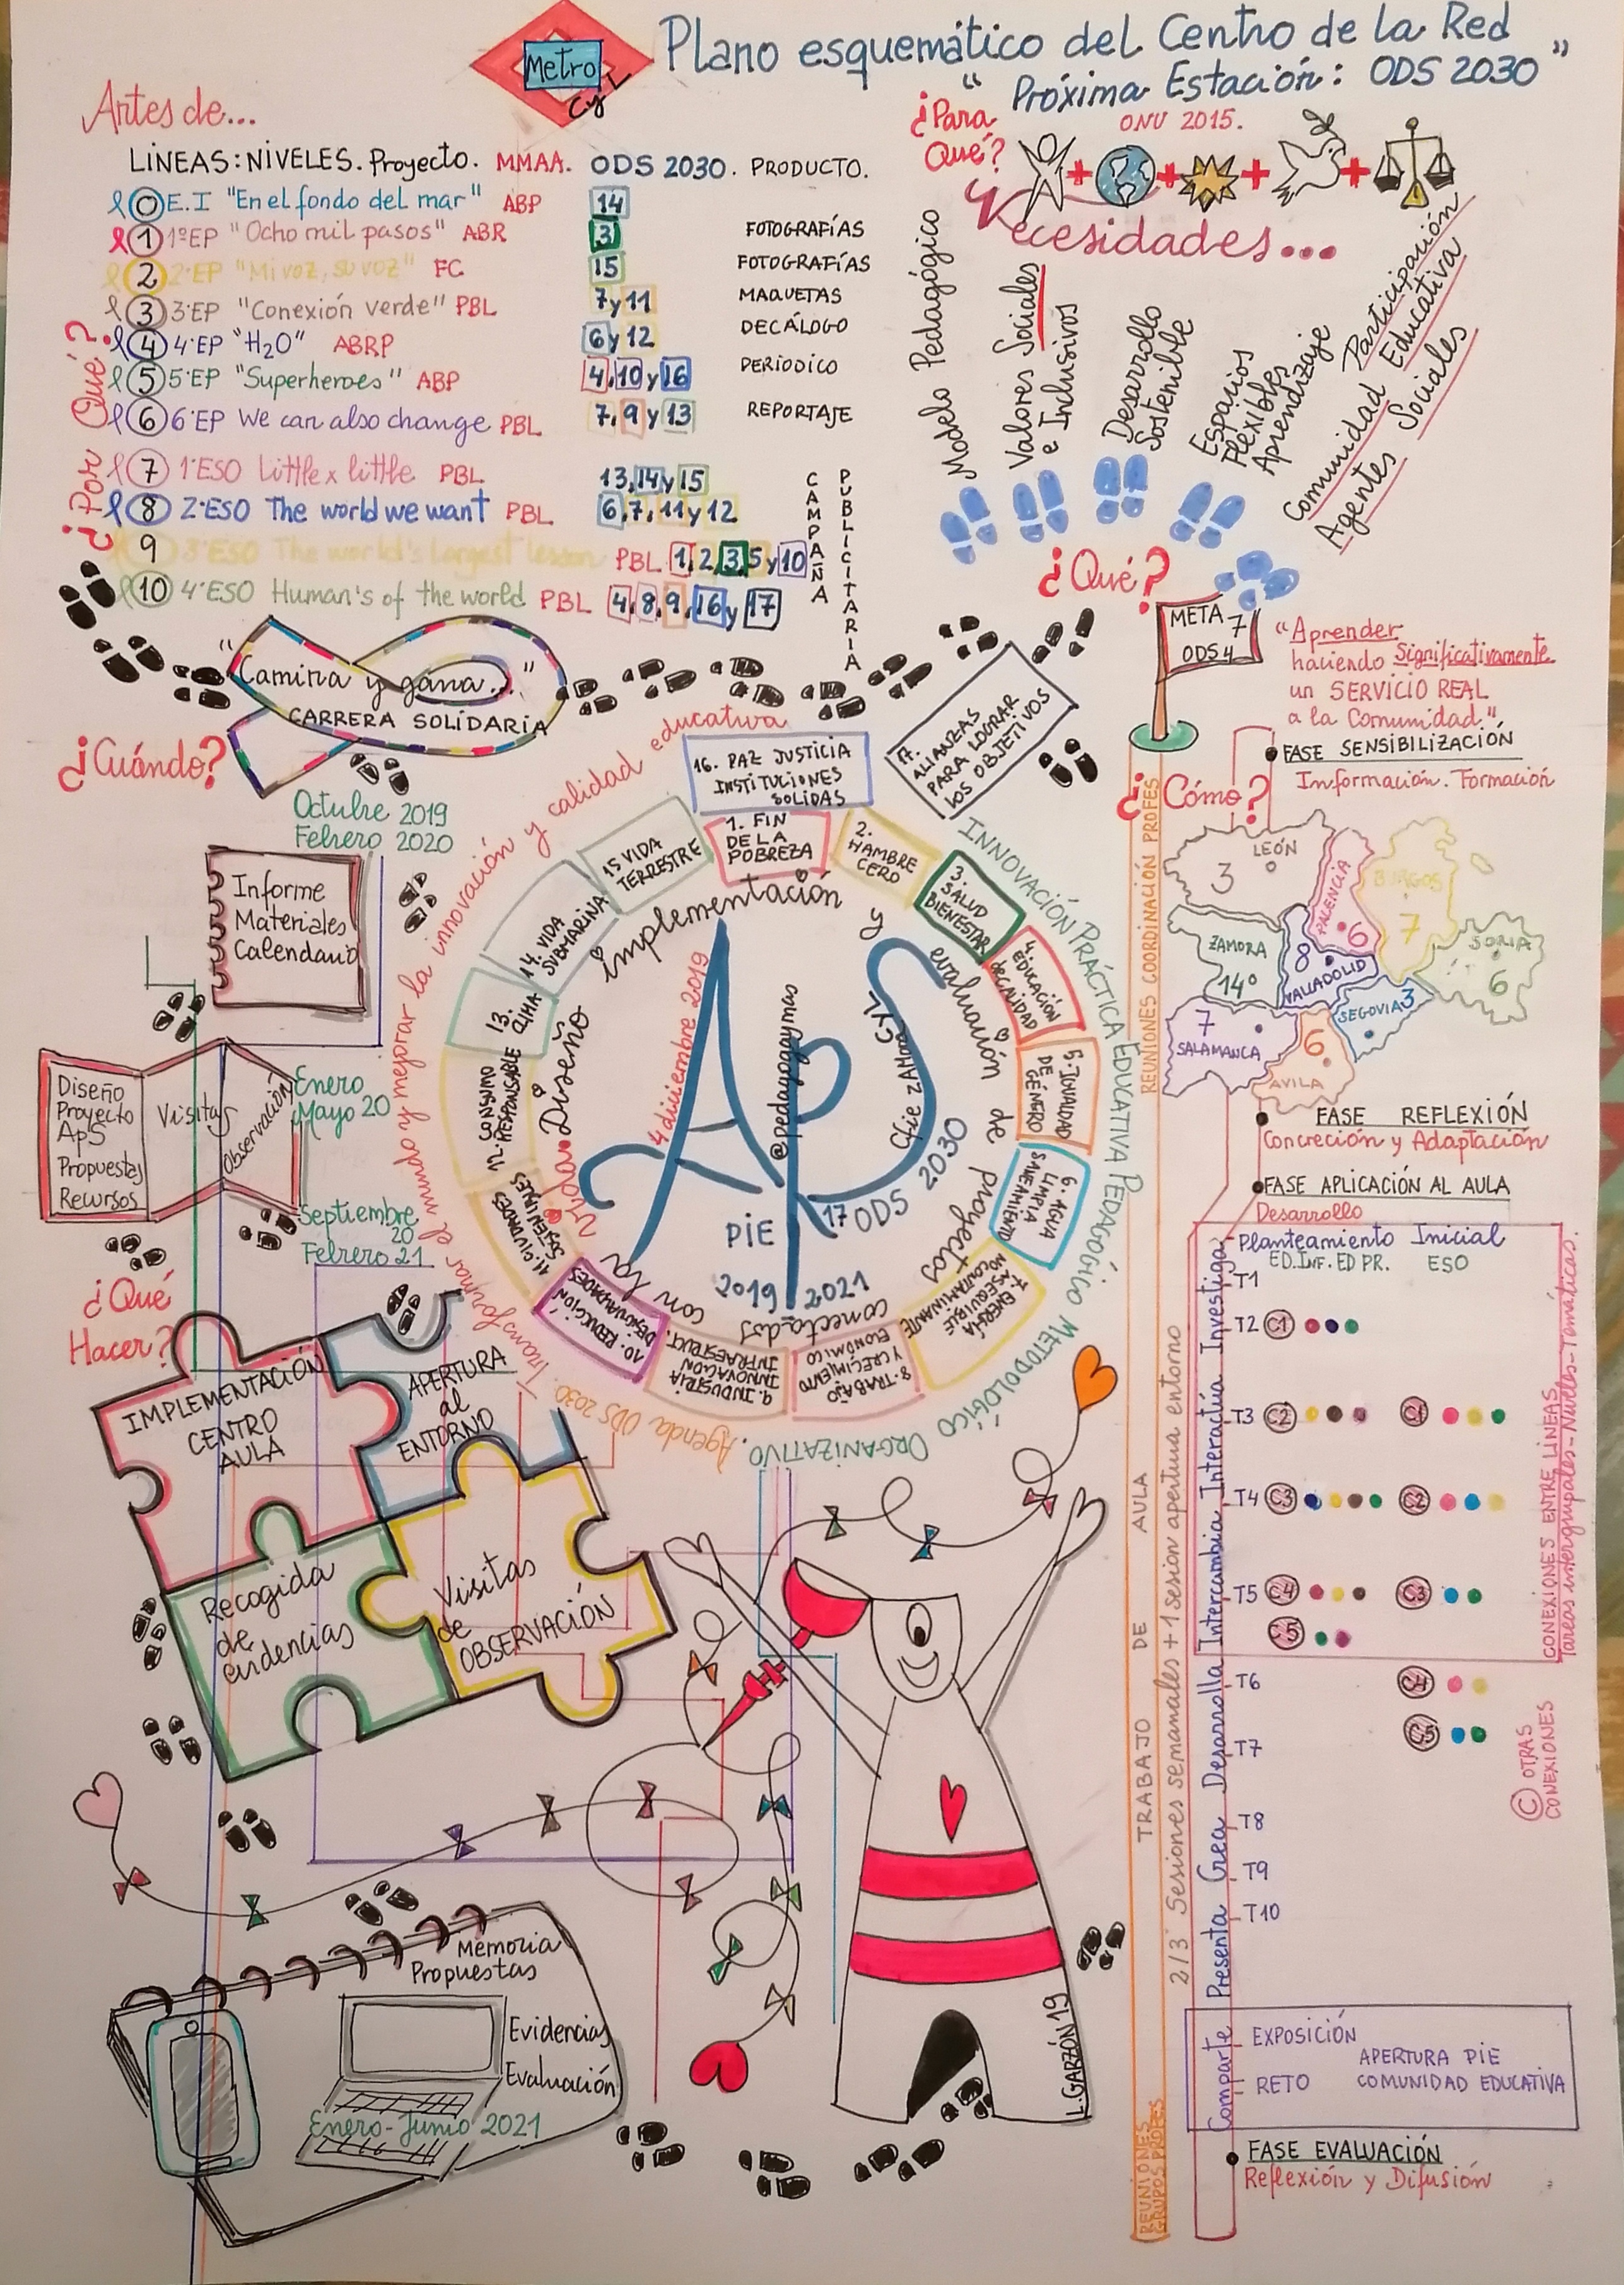 Metro
CyL
Plano esquemático del Centro de la Red
"Próxima Estación: ODS 2030"
Artes de...
LÍNEAS: NIVELES. Proyecto. MMAA. ODS 2030. PRODUCTO.
¿Por Qué?
0 E.I "En el fondo del mar" ABP 14
1 1ºEP "Ocho mil pasos" ABR 3 FOTOGRAFÍAS
2 2ºEP "Mi voz, su voz" FC 15 FOTOGRAFÍAS
3 3ºEP "Conexión verde" PBL 7 y 11 MAQUETAS
4 4ºEP "H2O" ABRP 6 y 12 DECÁLOGO
5 5ºEP "Superheroes" ABP 4, 10 y 16 PERIODICO
6 6ºEP We can also change PBL 7, 9 y 13 REPORTAJE
7 1ºESO Little x little PBL 13, 14 y 15
8 2ºESO The world we want PBL 6, 7, 11 y 12
9 3ºESO The world's largest lesson PBL 1, 2, 3, 5 y 10
10 4ºESO Human's of the world PBL 4, 8, 9, 16 y 17
CAMPAÑA
PUBLICITARIA
¿Para
Qué?
ONU 2015.
Necesidades...
Modelo Pedagógico
Valores Sociales
e Inclusivos
Desarrollo
Sostenible
Espacios
Flexibles
Aprendizaje
Participación
Comunidad Educativa
Agentes Sociales
¿Qué?
META 7
ODS 4
"Aprender
haciendo Significativamente
un SERVICIO REAL
a la Comunidad."
"Camina y gana..."
CARRERA SOLIDARIA
¿Cuándo?
Octubre 2019
Febrero 2020
Informe
Materiales
Calendario
Diseño
Proyecto
ApS
Propuestas
Recursos
Visitas
Observación
Enero
Mayo 20
Septiembre
20
Febrero 21
¿Qué
Hacer?
IMPLEMENTACIÓN
CENTRO
AULA
APERTURA
al
ENTORNO
Recogida
de
evidencias
Visitas
de
OBSERVACIÓN
Memoria
Propuestas
Evidencias
Evaluación
Enero-Junio 2021
Transformar el mundo y mejorar la innovación y calidad educativa
Agenda ODS 2030.
INNOVACIÓN PRÁCTICA EDUCATIVA PEDAGÓGICO METODOLÓGICO ORGANIZATIVO.
1. FIN
DE LA
POBREZA
2.
HAMBRE
CERO
3.
SALUD
BIENESTAR
4.
EDUCACIÓN
DE CALIDAD
5. IGUALDAD
DE
GÉNERO
6. AGUA
LIMPIA
SANEAMIENTO
7. ENERGÍA
ASEQUIBLE
NO CONTAMINANTE
8. TRABAJO
Y CRECIMIENTO
ECONÓMICO
9. INDUSTRIA
INNOVACIÓN
INFRAESTRUCT.
10. REDUCCIÓN
DESIGUALDADES
11. CIUDADES
SOSTENIBLES
12. CONSUMO
RESPONSABLE
13.
CLIMA
14. VIDA
SUBMARINA
15 VIDA
TERRESTRE
16. PAZ JUSTICIA
INSTITUCIONES
SOLIDAS
17.
ALIANZAS
PARA LOGRAR
LOS OBJETIVOS
Diseño, implementación y evaluación de proyectos conectados con la vida
ApS
4 diciembre 2019
@pedagogaymas
Cfie ZAMORA CYL
PIE
17 ODS 2030
2019 2021
L. GARZÓN 19
¿Cómo?
FASE SENSIBILIZACIÓN
Información. Formación
LEÓN
3
PALENCIA
6
BURGOS
7
ZAMORA
14
8
VALLADOLID
SORIA
6
7
SALAMANCA
6
AVILA
SEGOVIA 3
FASE REFLEXIÓN
Concreción y Adaptación
FASE APLICACIÓN AL AULA
Desarrollo
Planteamiento Inicial
ED.INF. ED PR. ESO
T1
T2 C1
T3 C2 C1
T4 C3 C2
T5 C4 C3
C5
T6 C4
T7 C5
T8
T9
T10
CONEXIONES ENTRE LÍNEAS
Tareas intergrupales-Niveles-Temáticas.
© OTRAS
CONEXIONES
REUNIONES COORDINACIÓN PROFES
TRABAJO DE AULA
2/3 Sesiones semanales + 1 sesion apertura entorno
Comparte Presenta Crea Desarrolla Intercambia Interactúa Investiga
EXPOSICIÓN
RETO
APERTURA PIE
COMUNIDAD EDUCATIVA
REUNIONES
GRUPOS PROFES
FASE EVALUACIÓN
Reflexión y Difusión